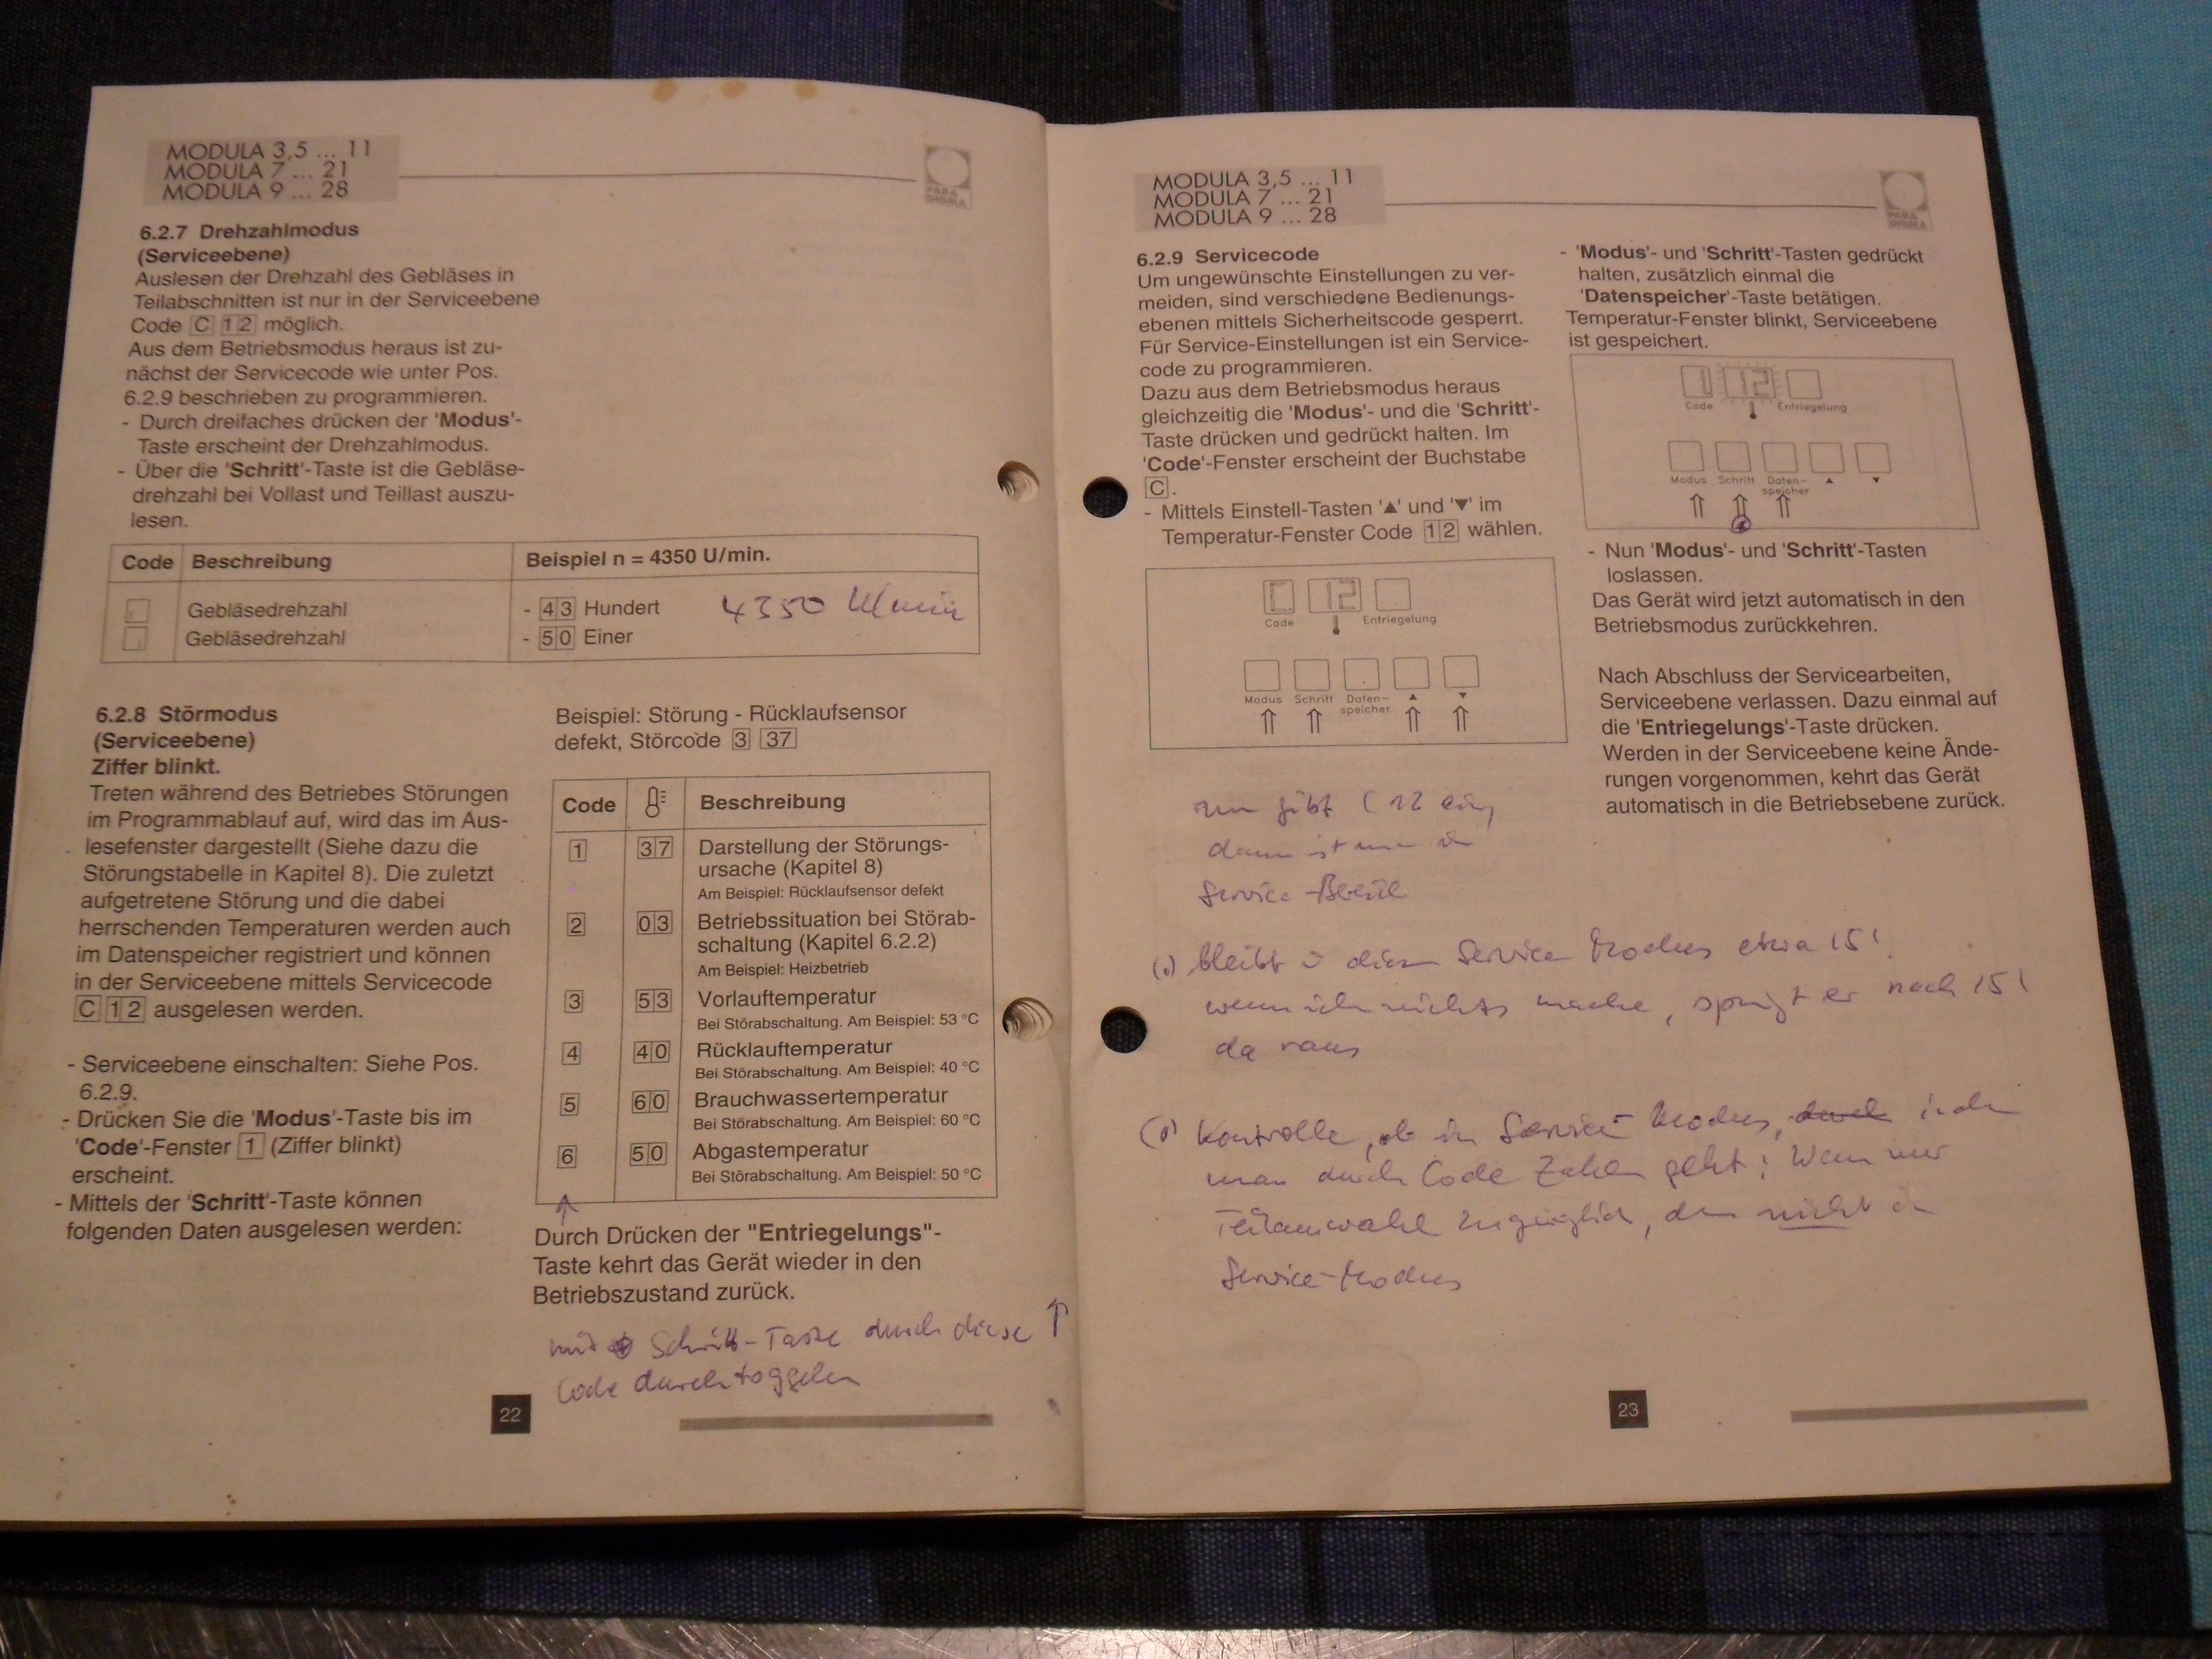 MODULA 3,5 ... 11
MODULA 7 ... 21
MODULA 9 ... 28
PARA
DIGMA
6.2.7 Drehzahlmodus
(Serviceebene)
Auslesen der Drehzahl des Gebläses in
Teilabschnitten ist nur in der Serviceebene
Code C 12 möglich.
Aus dem Betriebsmodus heraus ist zu-
nächst der Servicecode wie unter Pos.
6.2.9 beschrieben zu programmieren.
- Durch dreifaches drücken der 'Modus'-
Taste erscheint der Drehzahlmodus.
- Über die 'Schritt'-Taste ist die Gebläse-
drehzahl bei Vollast und Teillast auszu-
lesen.
Code Beschreibung Beispiel n = 4350 U/min.
Gebläsedrehzahl - 43 Hundert 4350 U/min
Gebläsedrehzahl - 50 Einer
6.2.8 Störmodus
(Serviceebene)
Ziffer blinkt.
Treten während des Betriebes Störungen
im Programmablauf auf, wird das im Aus-
lesefenster dargestellt (Siehe dazu die
Störungstabelle in Kapitel 8). Die zuletzt
aufgetretene Störung und die dabei
herrschenden Temperaturen werden auch
im Datenspeicher registriert und können
in der Serviceebene mittels Servicecode
C 12 ausgelesen werden.
- Serviceebene einschalten: Siehe Pos.
6.2.9.
- Drücken Sie die 'Modus'-Taste bis im
'Code'-Fenster 1 (Ziffer blinkt)
erscheint.
- Mittels der 'Schritt'-Taste können
folgenden Daten ausgelesen werden:
Beispiel: Störung - Rücklaufsensor
defekt, Störcode 3 37
Code Beschreibung
1 37 Darstellung der Störungs-
ursache (Kapitel 8)
Am Beispiel: Rücklaufsensor defekt
2 03 Betriebssituation bei Störab-
schaltung (Kapitel 6.2.2)
Am Beispiel: Heizbetrieb
3 53 Vorlauftemperatur
Bei Störabschaltung. Am Beispiel: 53 °C
4 40 Rücklauftemperatur
Bei Störabschaltung. Am Beispiel: 40 °C
5 60 Brauchwassertemperatur
Bei Störabschaltung. Am Beispiel: 60 °C
6 50 Abgastemperatur
Bei Störabschaltung. Am Beispiel: 50 °C
Durch Drücken der "Entriegelungs"-
Taste kehrt das Gerät wieder in den
Betriebszustand zurück.
mit Schritt-Taste durch diese ↑
Code durchtoggeln
22
MODULA 3,5 ... 11
MODULA 7 ... 21
MODULA 9 ... 28
PARA
DIGMA
6.2.9 Servicecode
Um ungewünschte Einstellungen zu ver-
meiden, sind verschiedene Bedienungs-
ebenen mittels Sicherheitscode gesperrt.
Für Service-Einstellungen ist ein Service-
code zu programmieren.
Dazu aus dem Betriebsmodus heraus
gleichzeitig die 'Modus'- und die 'Schritt'-
Taste drücken und gedrückt halten. Im
'Code'-Fenster erscheint der Buchstabe
C.
- Mittels Einstell-Tasten '▲' und '▼' im
Temperatur-Fenster Code 12 wählen.
C 12
Code Entriegelung
Modus Schritt Daten-
speicher ▲ ▼
gibt C 12 ein,
dann ist man in
Service-
bleibt in diesem Service Modus etwa 15'
wenn ich nichts mache, springt er nach 15'
da raus
Kontrolle, ob im Service-Modus, durch indem
man durch Code Zahlen geht: Wenn nur
Teilauswahl zugänglich, dann nicht in
Service-Modus
- 'Modus'- und 'Schritt'-Tasten gedrückt
halten, zusätzlich einmal die
'Datenspeicher'-Taste betätigen.
Temperatur-Fenster blinkt, Serviceebene
ist gespeichert.
12
Code Entriegelung
Modus Schritt Daten-
speicher ▲ ▼
- Nun 'Modus'- und 'Schritt'-Tasten
loslassen.
Das Gerät wird jetzt automatisch in den
Betriebsmodus zurückkehren.
Nach Abschluss der Servicearbeiten,
Serviceebene verlassen. Dazu einmal auf
die 'Entriegelungs'-Taste drücken.
Werden in der Serviceebene keine Ände-
rungen vorgenommen, kehrt das Gerät
automatisch in die Betriebsebene zurück.
23